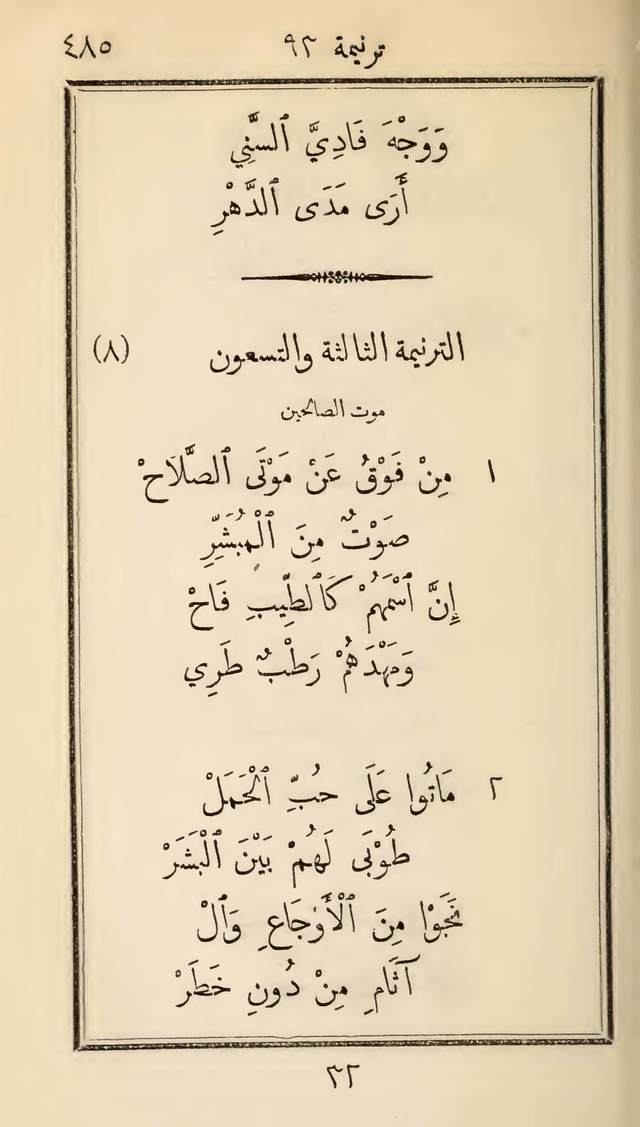 ترنيمة ٩٣ ٤٨٥
وَوَجْهَ فَادِيَّ ٱلسَّنِي
أَرَى مَدَى ٱلدَّهْرِ
الترنيمة الثالثة والتسعون (٨)
موت الصالحين
١ مِنْ فَوْقُ عَنْ مَوْتَى ٱلصَّلَاحْ
صَوْتٌ مِنَ ٱلْمُبَشِّرِ
إِنَّ ٱسْمَهُمْ كَٱلطِّيبِ فَاحْ
وَمَهْدَهُمْ رَطْبٌ طَرِي
٢ مَاتُوا عَلَى حُبِّ ٱلْحَمَلْ
طُوْبَى لَهُمْ بَيْنَ ٱلْبَشَرْ
نَجَوْا مِنَ ٱلْأَوْجَاعِ وَٱلْ
آثَامِ مِنْ دُونِ خَطَرْ
٣٢